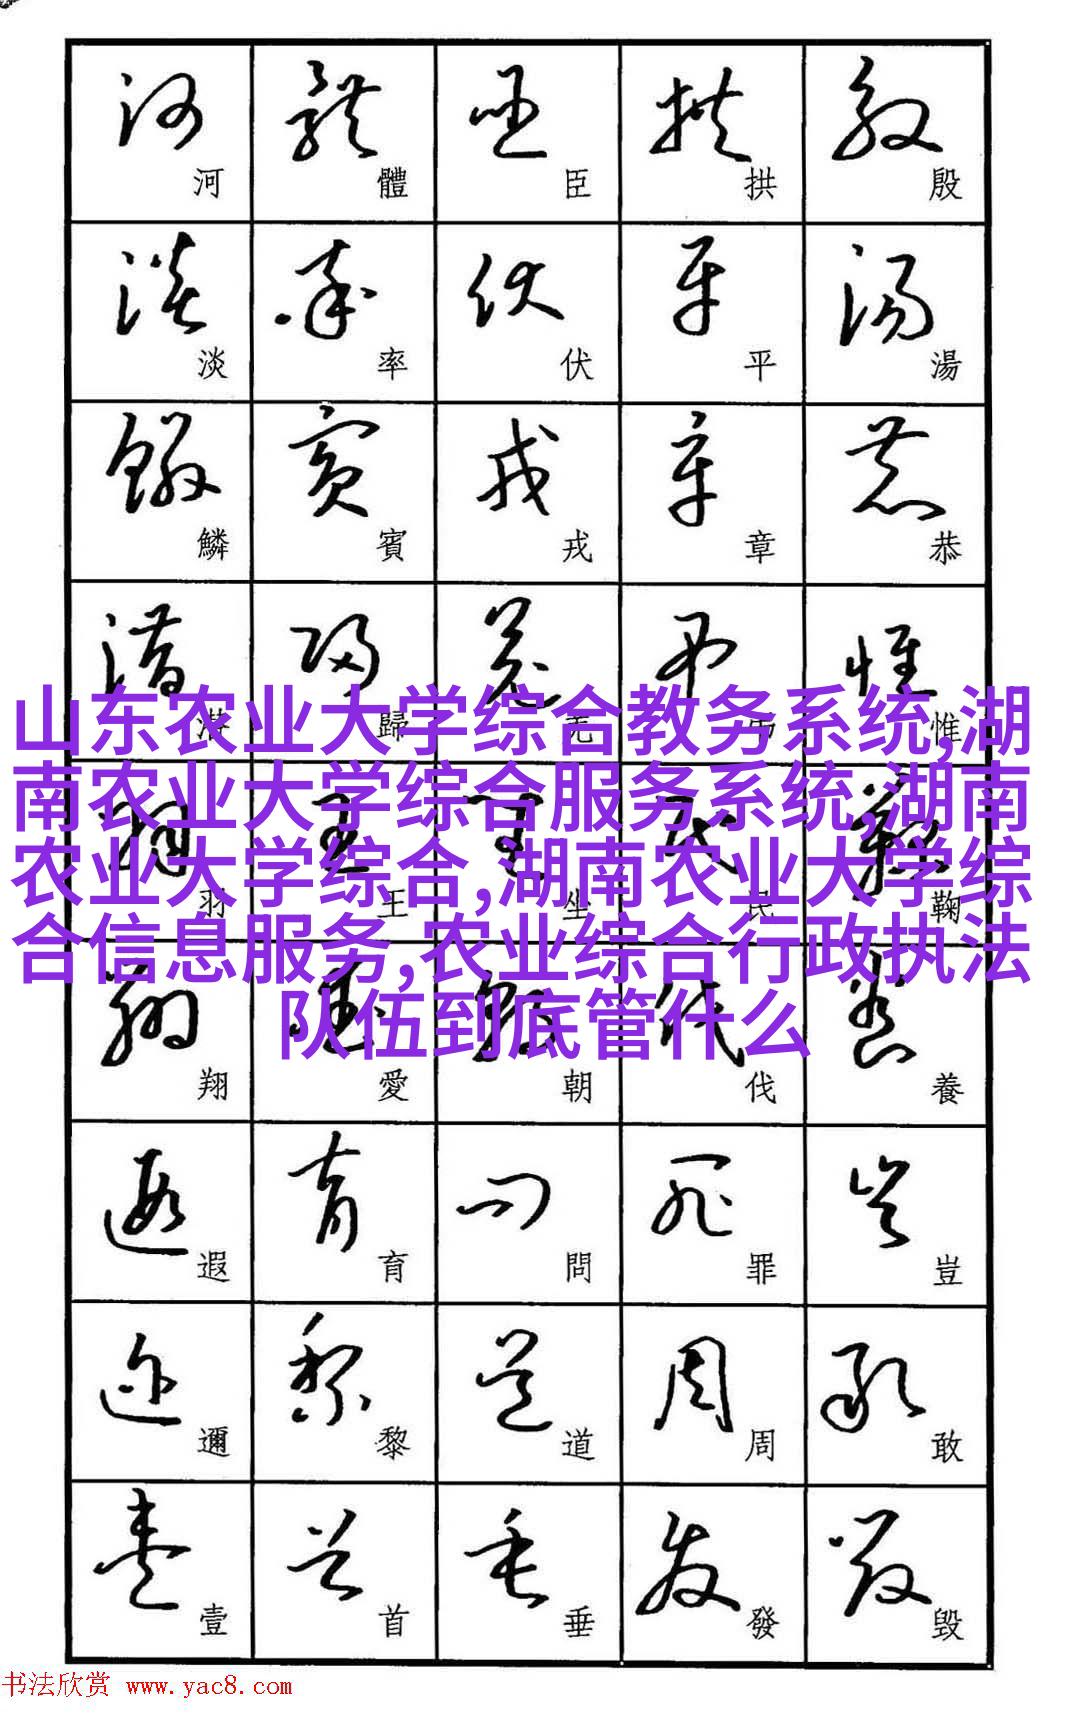 殷湯恭惟鞠養豈敢毀
拱平章弔民伐罪周發
臣伏戎羌坐朝問道垂
體率賓歸王愛育黎首
河淡鱗潛羽翔遐邇壹
山东农业大学综合教务系统,湖
南农业大学综合服务系统,湖南
农业大学综合,湖南农业大学综
合信息服务,农业综合行政执法
队伍到底管什么
书法欣赏 www.yac8.com